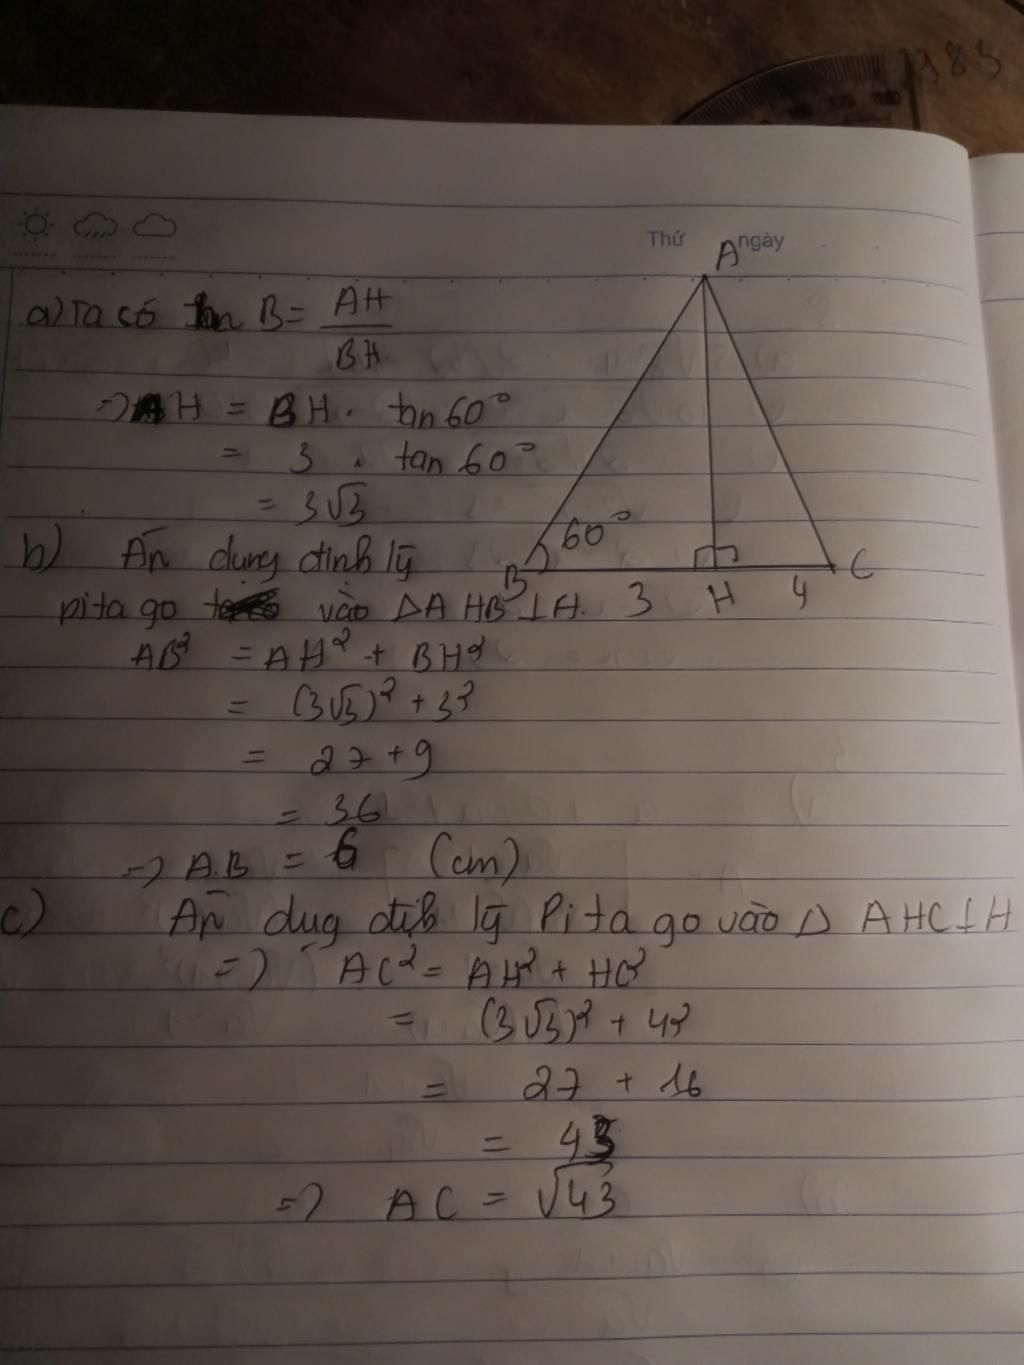 983
Thứ ngày
A
a) Ta có tan B = AH / BH
=> AH = BH . tan 60°
= 3 . tan 60°
= 3√3
60°
B 3 H 4 C
b) Ăn dụng đinh lý
pi ta go vào ΔA HB ⊥ H.
AB² = AH² + BH²
= (3√3)² + 3²
= 27 + 9
= 36
=> A.B = 6 (cm)
c) Ăn dug địh lý Pi ta go vào Δ AHC ⊥ H
=> AC² = AH² + HC²
= (3√3)² + 4²
= 27 + 16
= 43
=> AC = √43